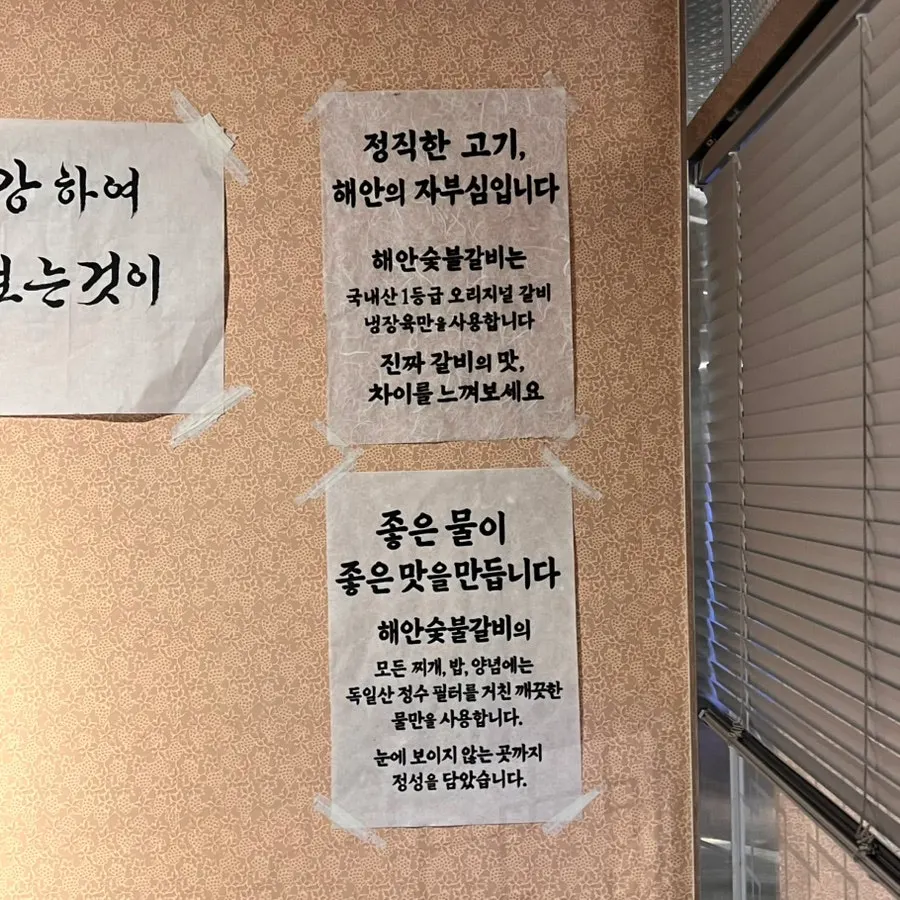 하여
는것이
정직한 고기,
해안의 자부심입니다
해안숯불갈비는
국내산 1등급 오리지널 갈비
냉장육만을 사용합니다
진짜 갈비의 맛,
차이를 느껴보세요
좋은 물이
좋은 맛을 만듭니다
해안숯불갈비의
모든 찌개, 밥, 양념에는
독일산 정수 필터를 거친 깨끗한
물만을 사용합니다.
눈에 보이지 않는 곳까지
정성을 담았습니다.